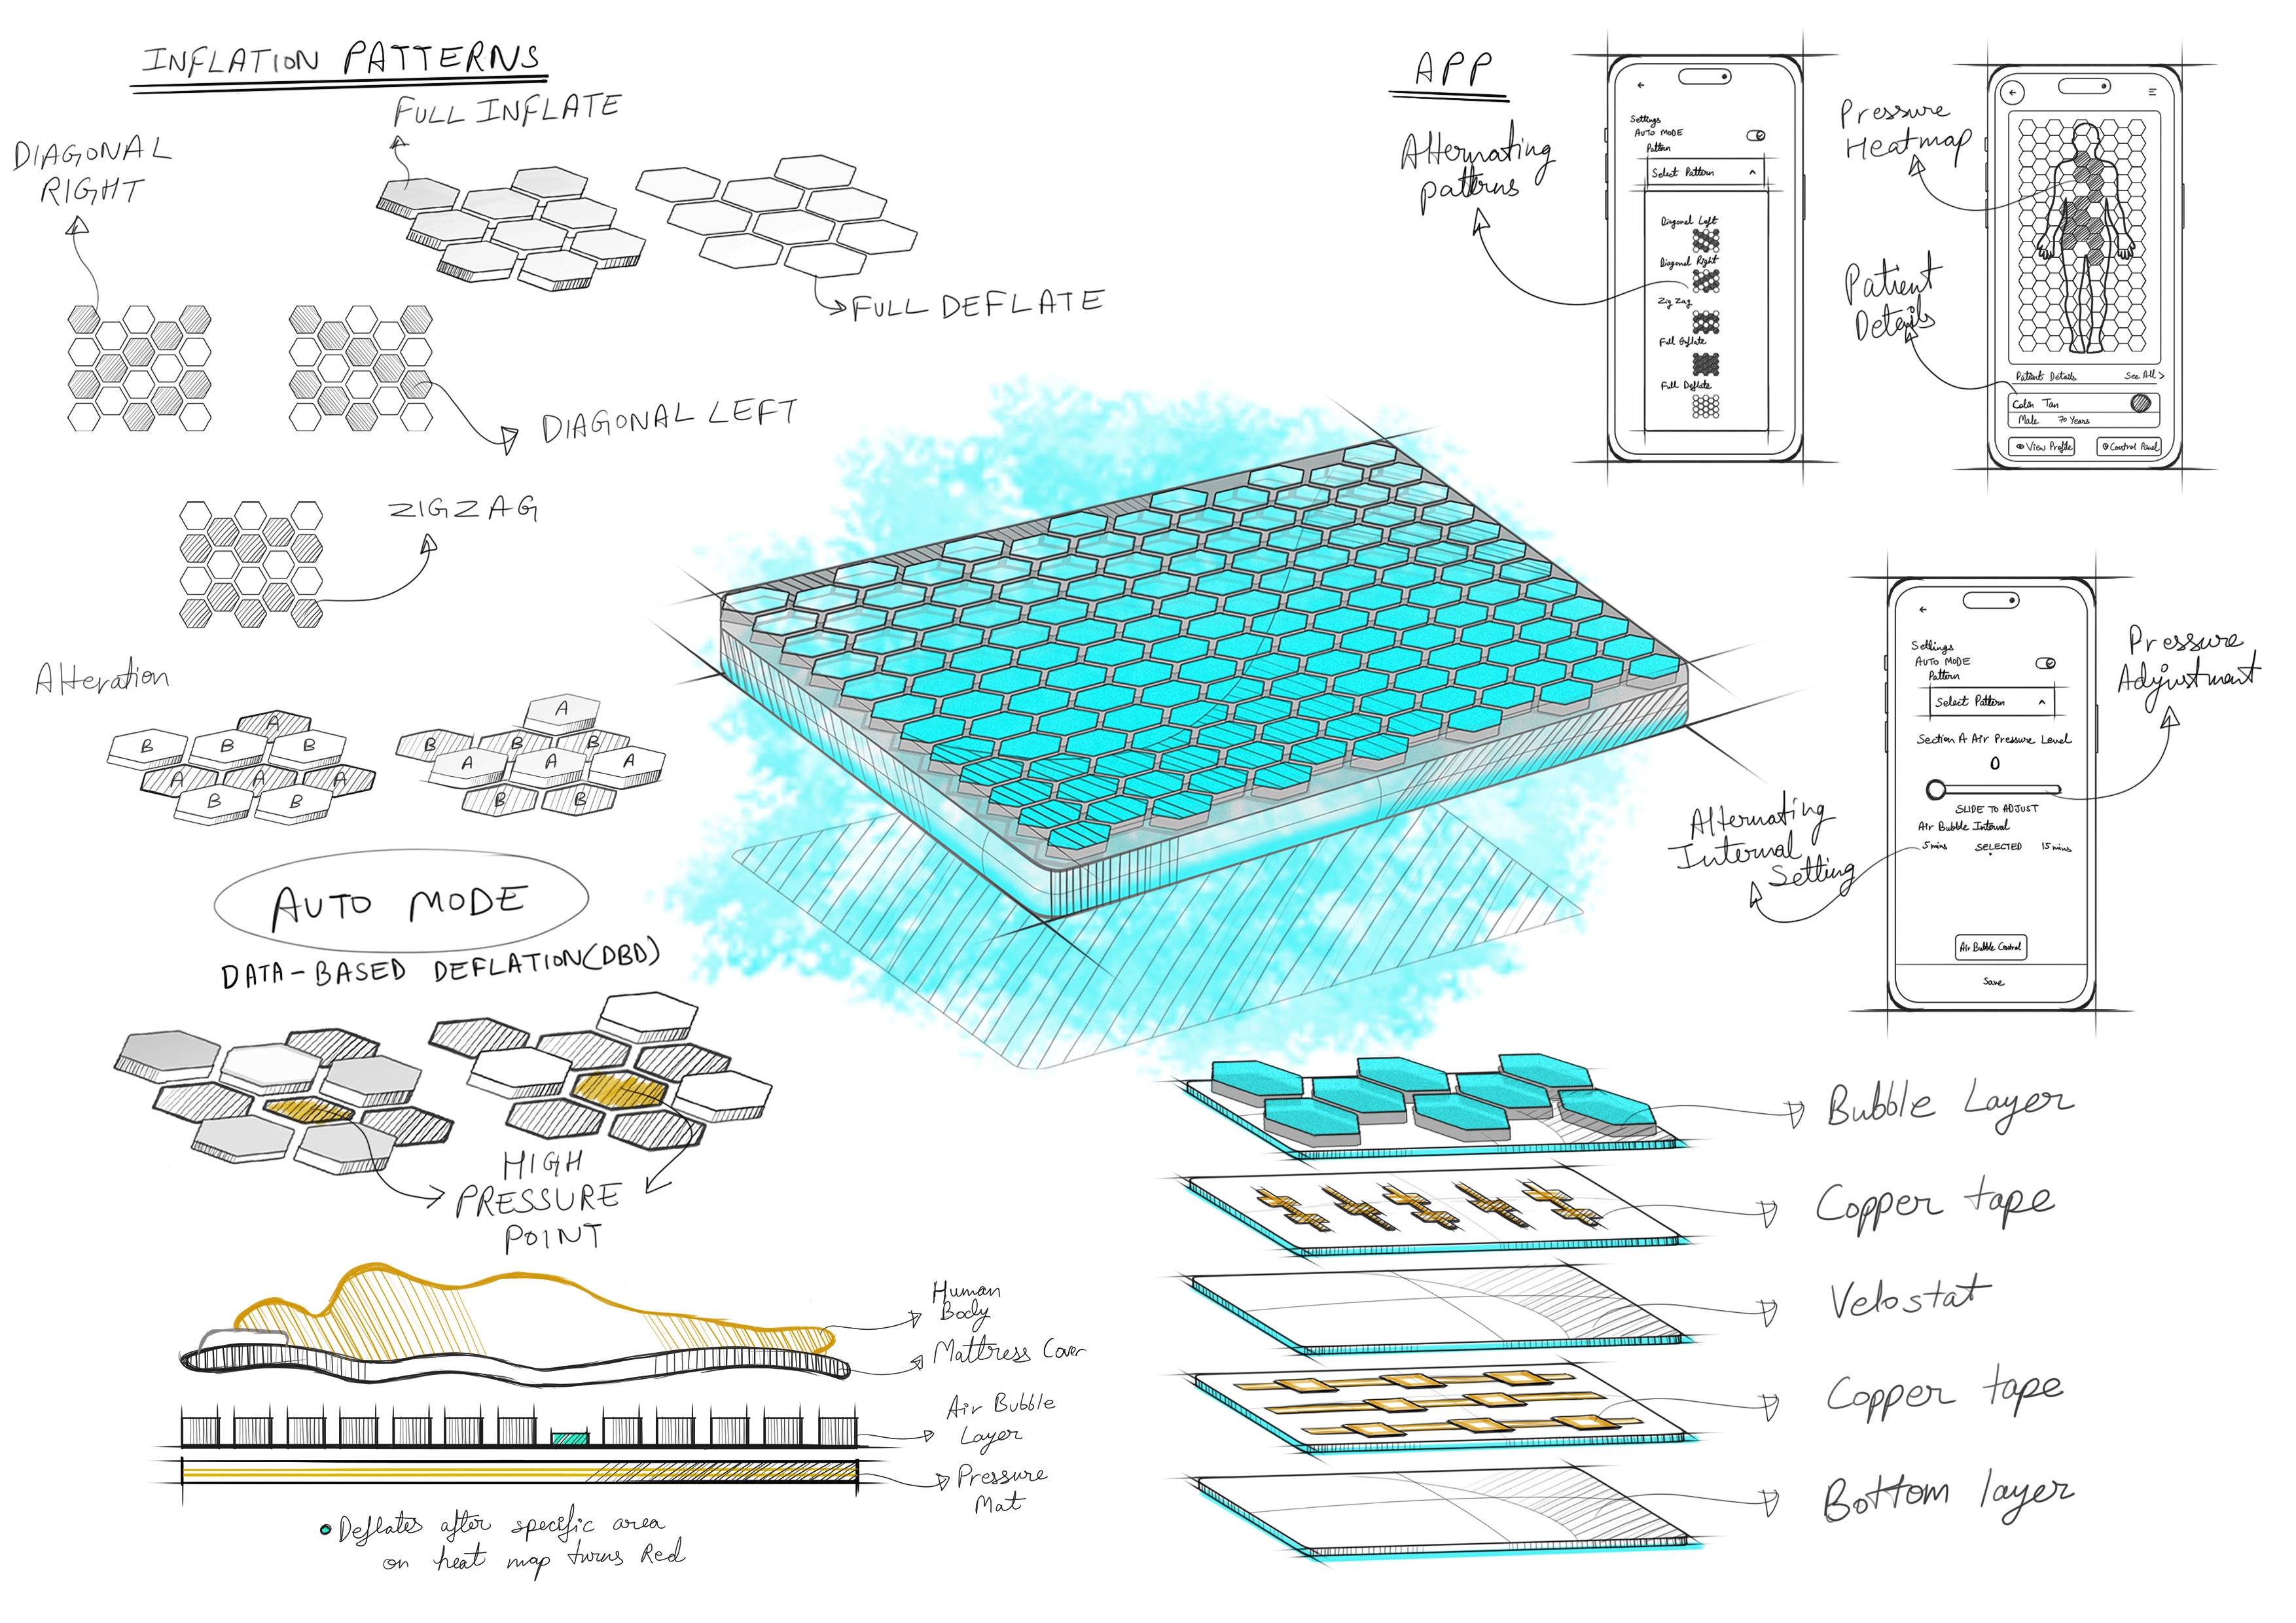 INFLATION PATTERNS
FULL INFLATE
DIAGONAL
RIGHT
FULL DEFLATE
DIAGONAL LEFT
ZIGZAG
Alteration
A
B B B
A A A
B B
A
B B B
A A A
B B
AUTO MODE
DATA-BASED DEFLATION(DBD)
HIGH
PRESSURE
POINT
Human
Body
Mattress Cover
Air Bubble
Layer
Pressure
Mat
Deflates after specific area
on heat map turns Red
APP
Alternating
patterns
Settings
AUTO MODE
Pattern
Select Pattern
Diagonal Left
Diagonal Right
Zig Zag
Full Inflate
Full Deflate
Pressure
Heatmap
Patient
Details
Patient Details See All >
Colin Tan
Male 70 Years
View Profile
Control Panel
Settings
AUTO MODE
Pattern
Select Pattern
Section A Air Pressure Level
0
SLIDE TO ADJUST
Air Bubble Interval
5 mins SELECTED 15 mins
Air Bubble Control
Save
Pressure
Adjustment
Alternating
Internal
Setting
Bubble Layer
Copper tape
Velostat
Copper tape
Bottom layer